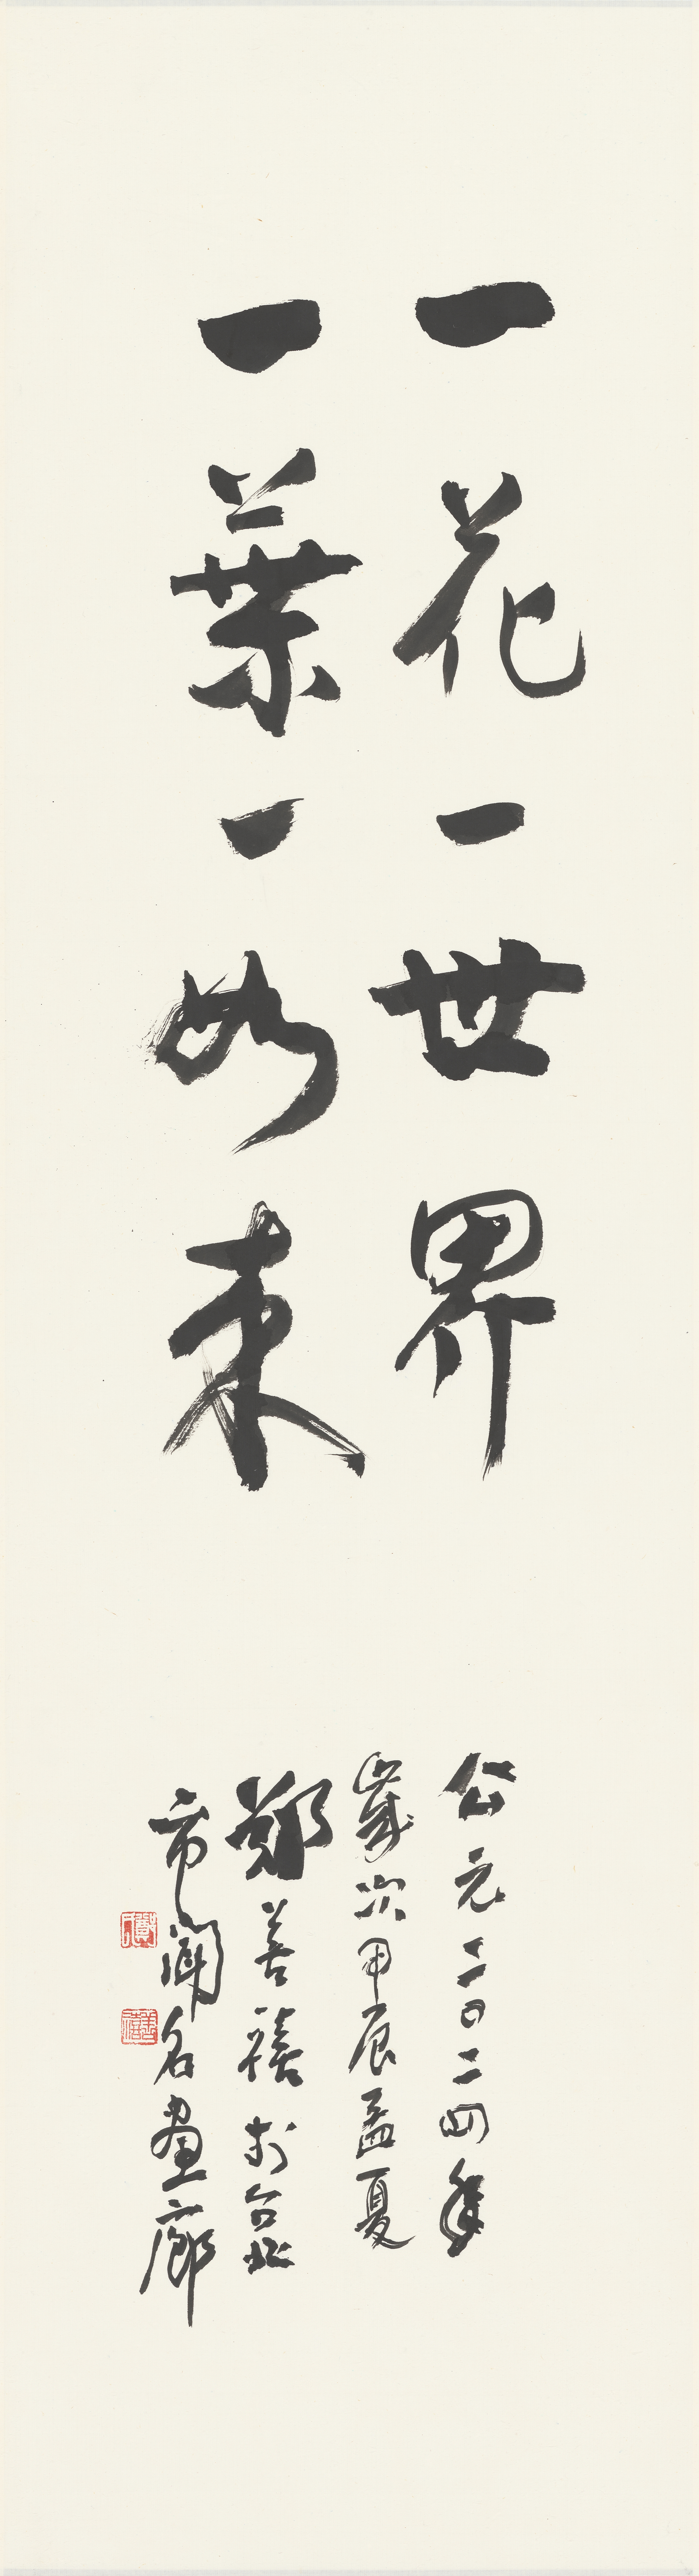 一花一世界
一葉一如来
公元二〇二四年
歲次甲辰孟夏
鄭善禧於台北
市聞名畫廊
鄭
善禧